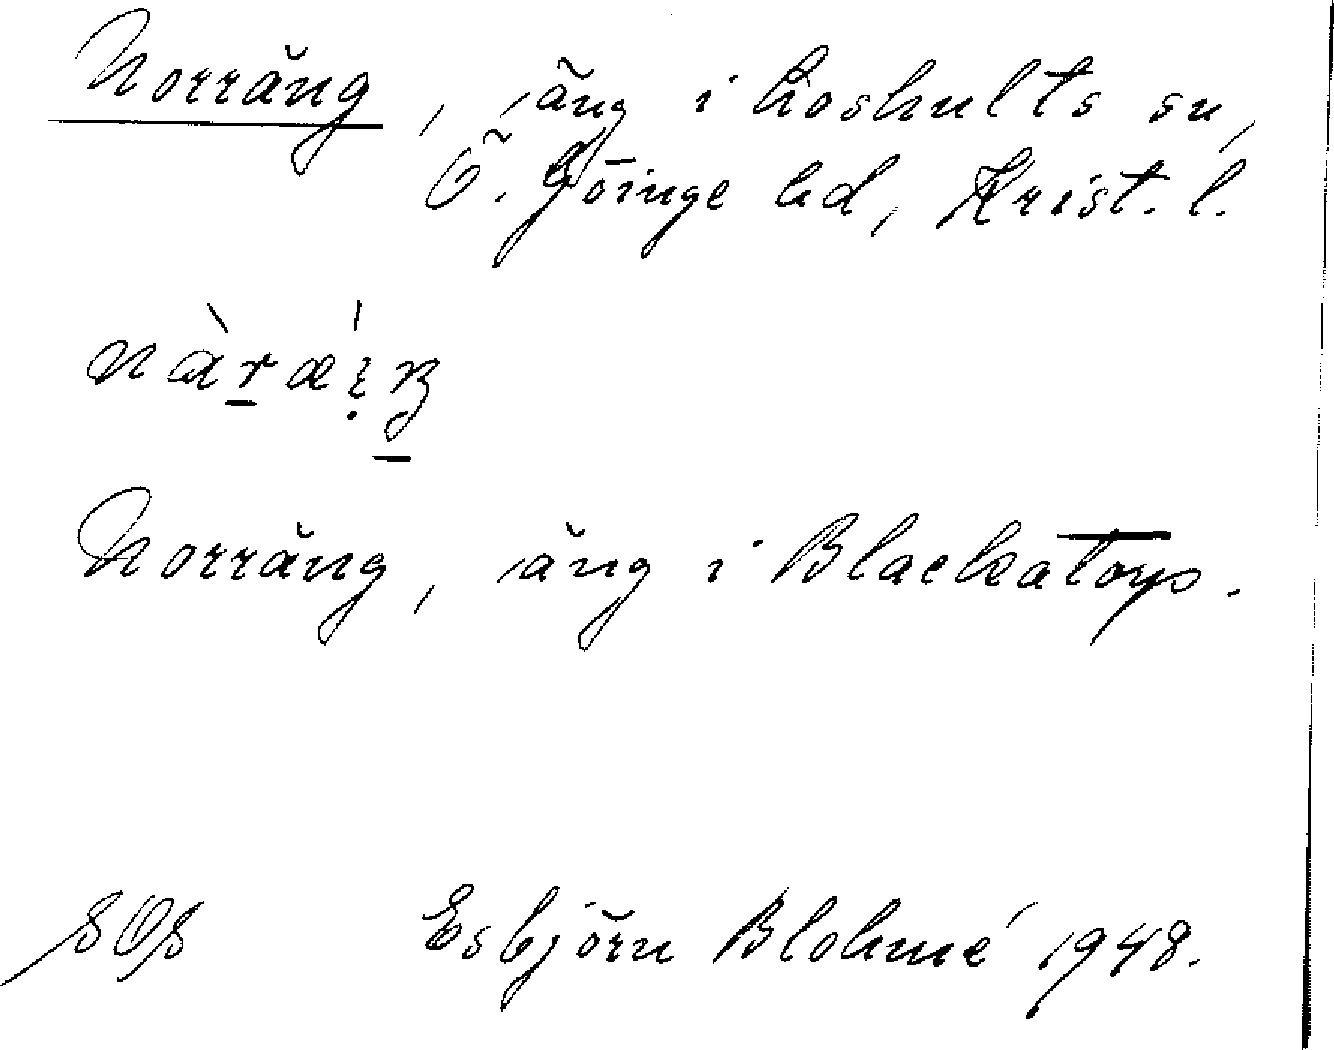 Norräng, äng i Loshults sn,
Ö. Göinge hd, Krist. l.
Norräng, äng i Blackatorp.
SOS Esbjörn Blohmé 1948.